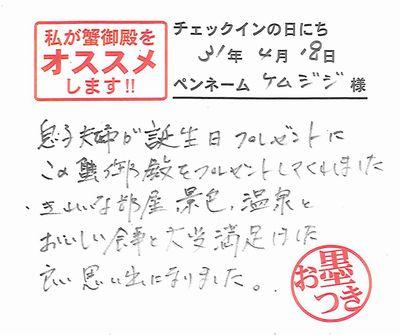 私が蟹御殿を
オススメ
します!!
チェックインの日にち
31年 4月 18日
ペンネーム ケムジジ 様
息子夫婦が誕生日プレゼントに
この蟹御殿をプレゼントしてくれました
きれいな部屋、景色、温泉と
おいしい食事と大変満足しました
良い思い出になりました。
お墨つき